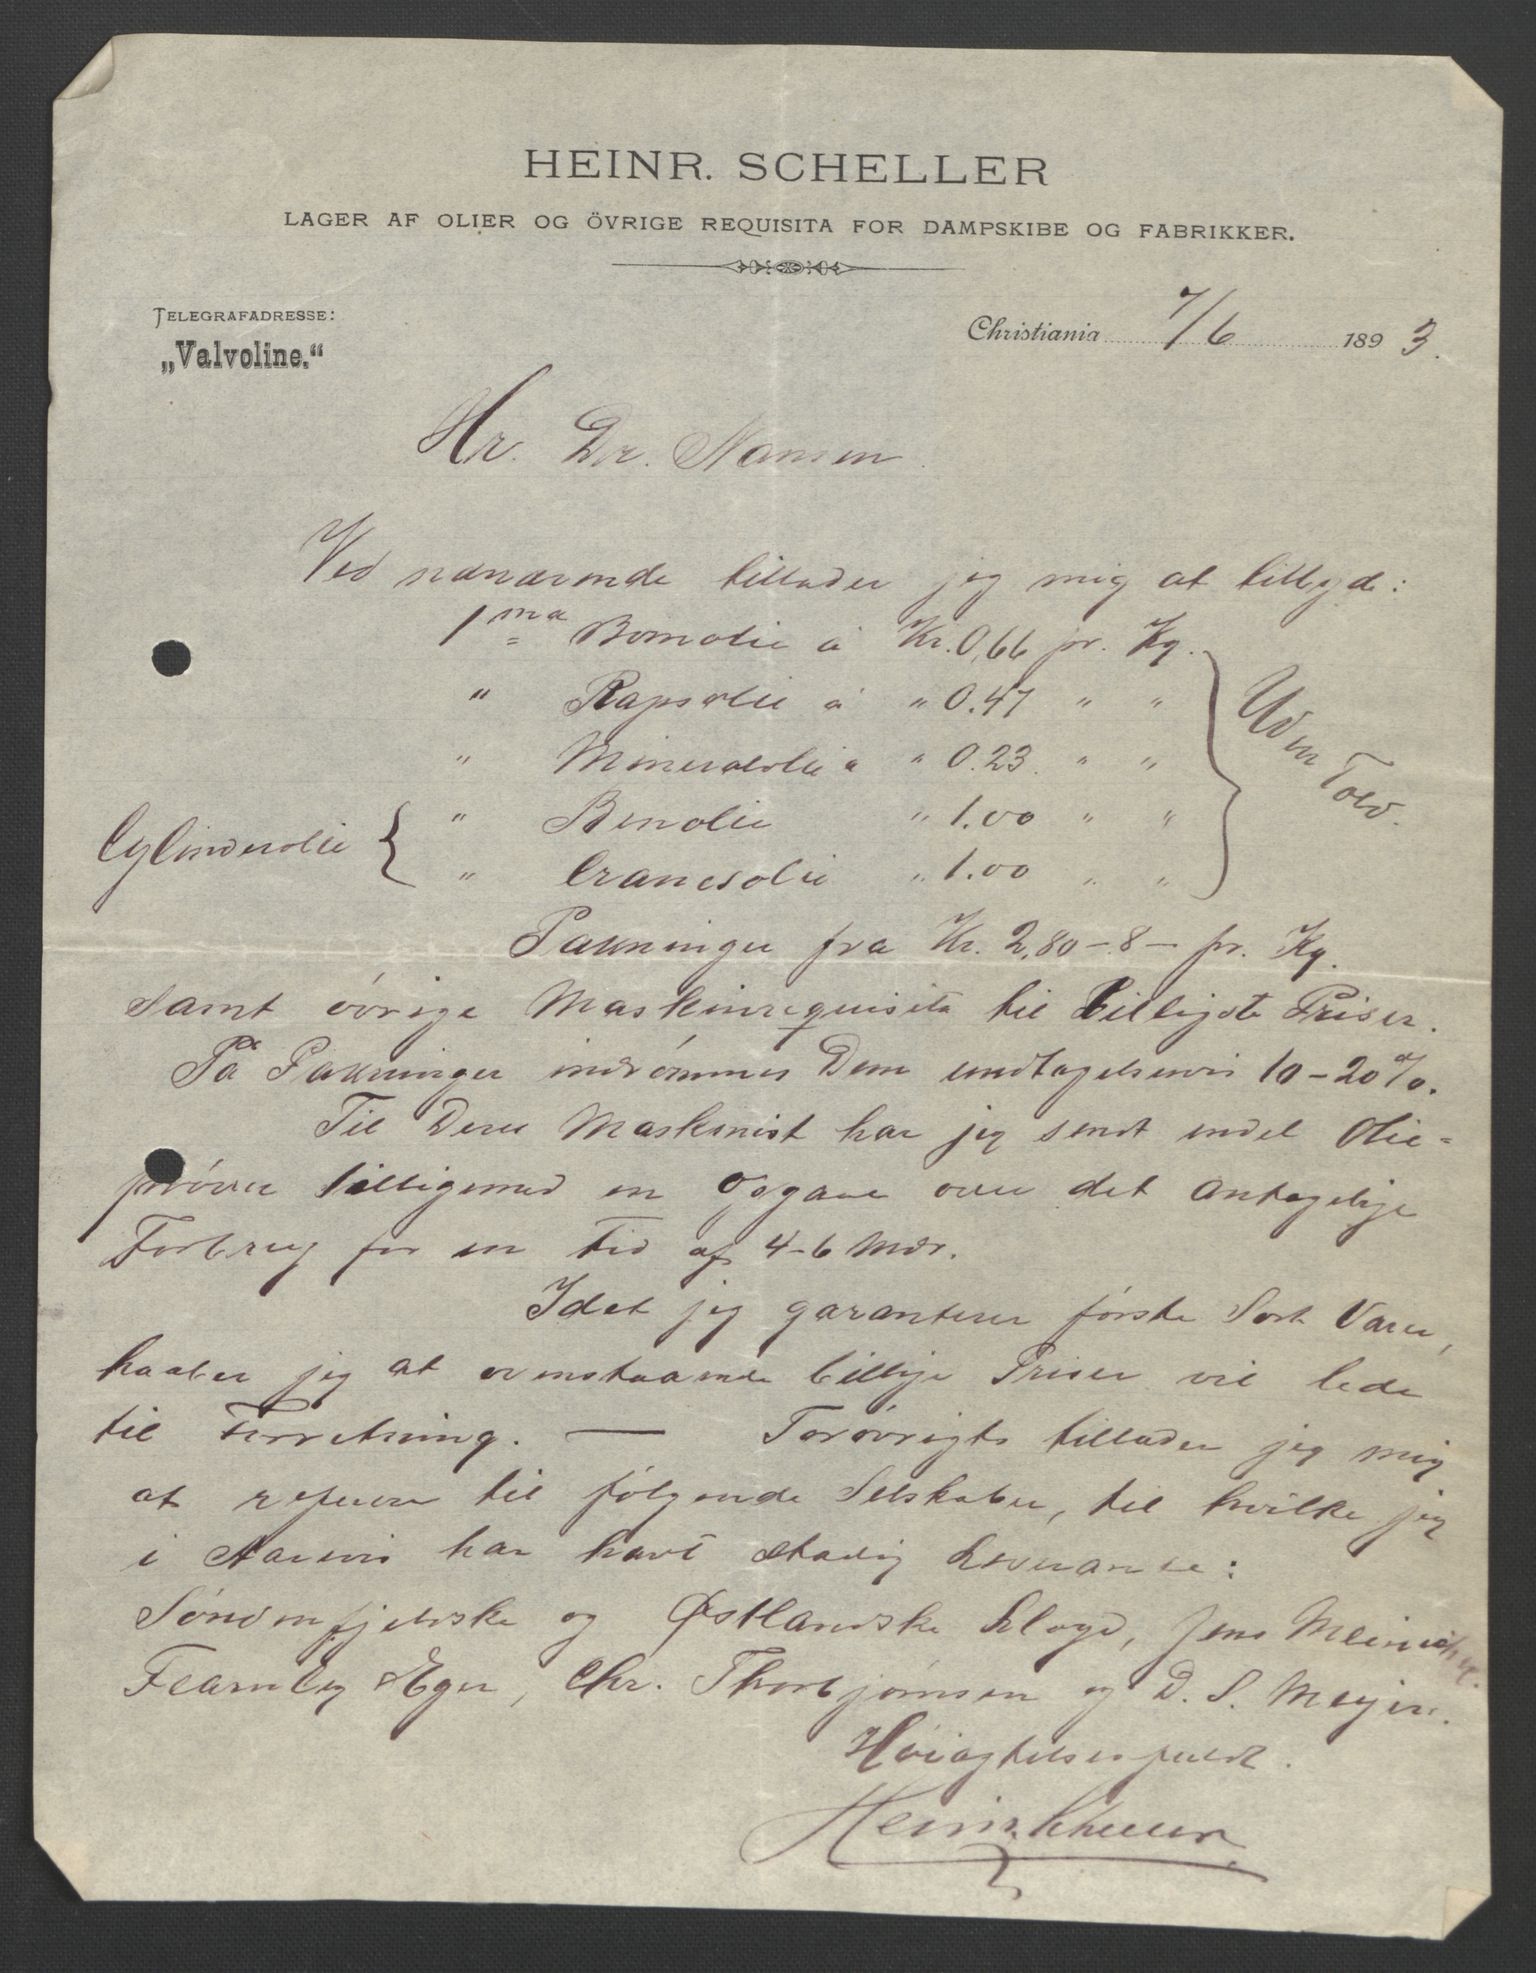 HEINR. SCHELLER
LAGER AF OLIER OG ÖVRIGE REQUISITA FOR DAMPSKIBE OG FABRIKKER.
TELEGRAFADRESSE:
„Valvoline.“
Christiania 7/6 1893.
Hr. Dr. Nansen
Ved nærværende tillader jeg mig at tilbyde:
1ma Bomolie à Kr. 0,66 pr. Kg.
" Rapsolie à " 0.47 " "
" Mineralolie à " 0.23 " "
" Benolie " 1.00 " "
Cylinderolie { " Cranesolie " 1.00 " "
} Uden Told.
Pakninger fra Kr. 2,80 – 8 – pr. Kg.
samt övrige Maskinrequisita til billigste Priser.
På Pakninger indrömmes Dem undtagelsesvis 10-20%.
Til Deres Maskinist har jeg sendt endel Olie=
pröver tilligemed en Opgave over det antagelige
Forbrug for en Tid af 4-6 Mdr.
Idet jeg garanterer förste Sort Varer,
haaber jeg at ovenstaaende billige Priser vil lede
til Forretning. — Forövrigt tillader jeg mig
at referere til fölgende Selskaber, til hvilke jeg
i Aarevis har havt stadig Leverance:
Söndenfjeldske og Østlandske Lloyd, Jens Meinich
Fearnley & Eger, Chr. Thorbjörnsen og D. S. Meyer.
Höiagtelsesfuldt.
Heinr. Scheller